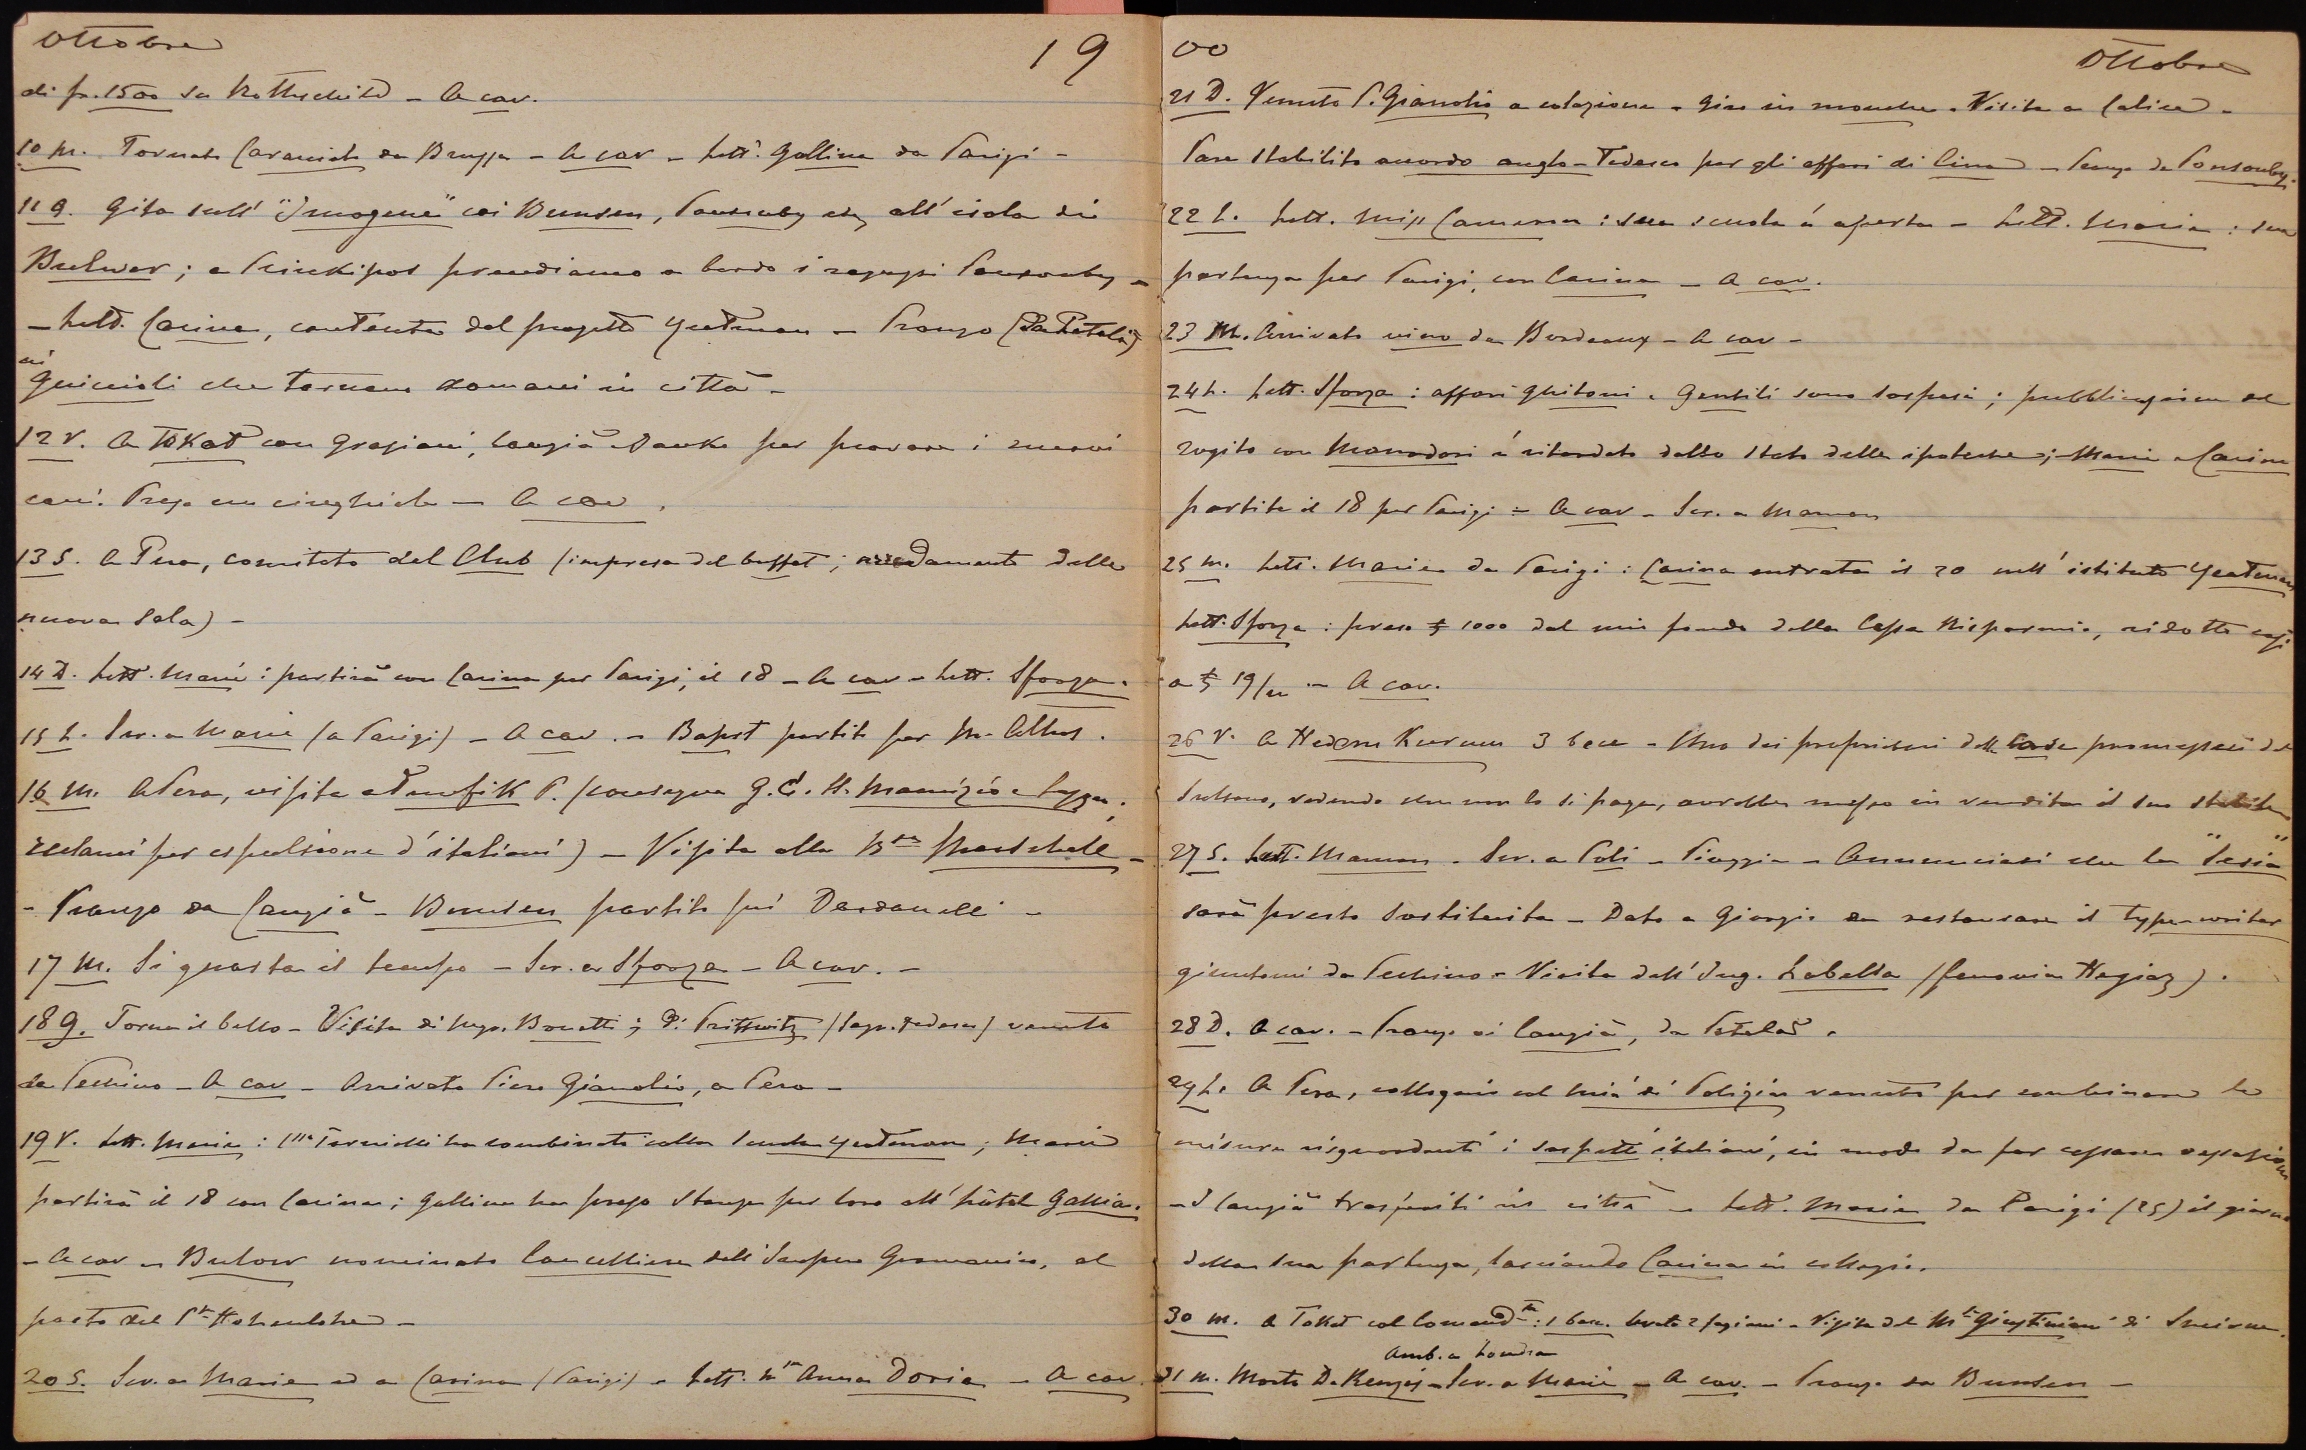 Ottobre 19
di fr. 1500 su Rothschild – A cav.
10 M. Tornato Caranich da Brussa – A cav – Lett. Gallina da Parigi –
11 G. Gita sull' "Imogene" coi Bunsen, Ponsonby etc, all' isola di
Bulwer; a Prinkipos prendiamo a bordo i ragazzi Ponsonby –
– Lett. Carina, contenta del progetto Yeatman – Pranzo (Da Petala)
ai
Guiccioli che tornano domani in città –
12 V. A Tokat con Graziani, Cangià e Panke per provare i nuovi
cani. Preso un cinghiale – A cav.
13 S. A Pera, comitato del Club (impresa del buffet; arredamento della
nuova sala) –
14 D. Lett. Marie: partirà con Carina per Parigi, il 18 – A cav – Lett. Sforza.
15 L. Scr. a Marie (a Parigi) – A cav. – Bapst partito per M. Athos.
16 M. A Pera, visita a Tewfik P. (consegna G. C. S. Maurizio e Lazzaro;
reclami per espulsione d'italiani) – Visita alla B.na Marschall –
– Pranzo da Cangià – Bunsen partito pei Dardanelli –
17 M. Si guasta il tempo – Scr. a Sforza – A cav. –
18 G. Torna il bello – Visita di Mgr. Bonetti; di Prittwitz (segr. tedesco) venuto
da Pechino – A cav – Arrivato Piero Gianolio, a Pera –
19 V. Lett. Marie: C.ssa Tornielli ha combinato colla scuola Yeatman; Marie
partirà il 18 con Carina; Gallina ha preso stanze per loro all' hôtel Gallia.
– A cav – Bulow nominato Cancelliere dell' Impero Germanico, al
posto del P.pe Hohenlohe –
20 S. Scr. a Marie ed a Carina (Parigi) – Lett. M.sa Anna Doria – A cav.
00 Ottobre
21 D. Venuto P. Gianolio a colazione – Giro in mouche – Visita a Calice –
Pare stabilito accordo anglo-tedesco per gli affari di Cina – Pranzo da Ponsonby.
22 L. Lett. Miss Cameron: sua scuola è aperta – Lett. Marie: sua
partenza per Parigi, con Carina – A cav.
23 M. Arrivato vino da Bordeaux – A cav –
24 L. Lett. Sforza: affari Ghitoni e Gentili sono sospesi; pubblicazione del
rogito con Manodori è ritardato dallo stato delle ipoteche; Marie e Carina
partite il 18 per Parigi – A cav – Scr. a Maman
25 M. Lett. Marie da Parigi: Carina entrata il 20 nell' istituto Yeatman
Lett. Sforza: preso £ 1000 dal mio fondo della Cassa Risparmio, ridotto così
a £ 19/m – A cav.
26 V. A Hedem Kurum 3 becc – Uno dei proprietari delle case promesseci dal
Sultano, vedendo che non lo si paga, avrebbe messo in vendita il suo stabile
27 S. Lett. Maman – Scr. a Poli – Pioggia – Annunciasi che la "Sesia"
sarà presto sostituita – Dato a Giorgio da restaurare il type-writer
giuntomi da Pechino – Visita dell' Ing. Labella (ferrovia Hegiaz).
28 D. A cav. – Pranzo ai Cangià, da Petala.
29 L. A Pera, colloquio col Min. di Polizia venuto per combinare le
misure risguardanti i sospetti italiani, in modo da far cessare vessazioni
– I Cangià trasferiti in città – Lett. Marie da Parigi (25) il giorno
della sua partenza, lasciando Carina in collegio.
30 M. A Tokat col Comand.te: 1 becc. levato 2 fagiani – Visita del M.se Giustiniani di Smirne.
Amb. a Londra
31 M. Morto De Renzis – Scr. a Marie – A cav. – Pranzo da Bunsen –